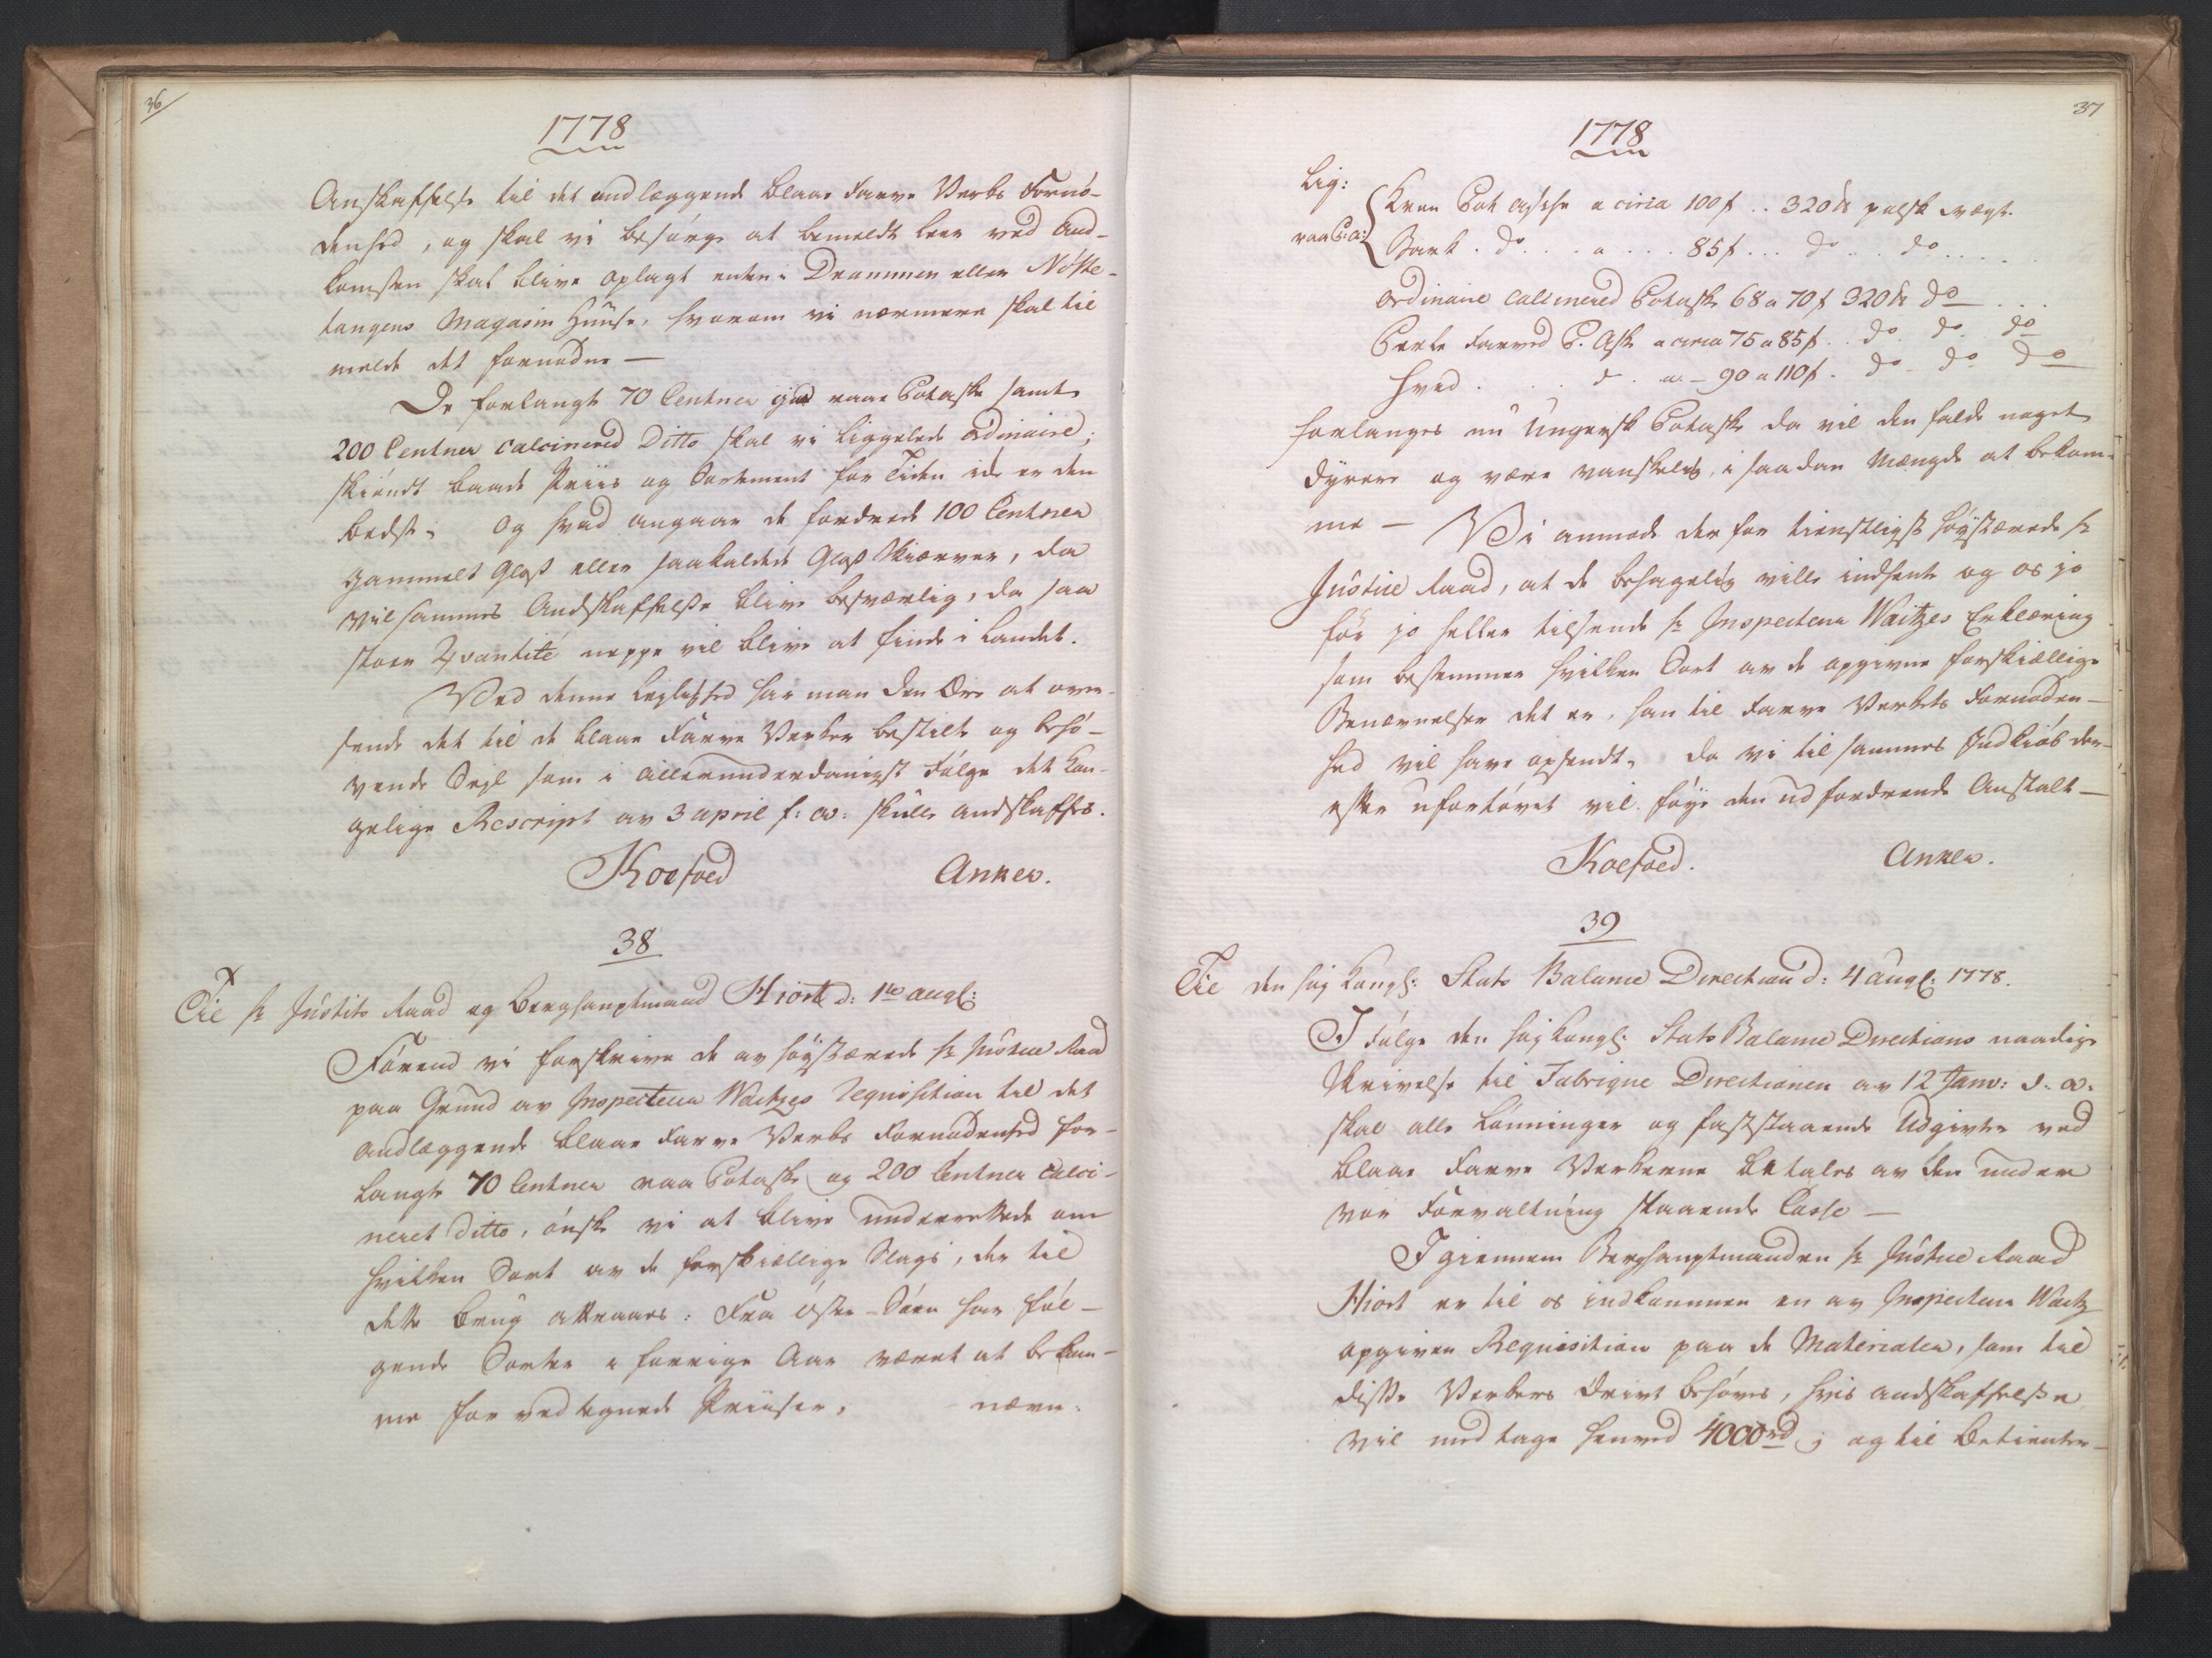 36
1778
Anskaffelse til det andlæggende blaae Farve Verks Fornö-
denhed, og skal vi besörge at bemeldte leer ved And-
komsten skal blive oplagt enten i Drammen eller Nöste-
tangens Magasin Huuse, hvorom vi nærmere skal til
melde det fornødne —
De forlangte 70 Centner god raae Potaske samt
200 Centner calcinered Ditto skal vi liggeleds ordinaire;
skiöndt baade Priis og Sortement for Tiden ide er den
bedste; Og hvad angaaer de fordrede 100 Centner
gammelt Glas eller saakaldede Glas Skierver, da
vil sammes Andskaffelse blive besværlig, da saa
stoer Qvantité neppe vil blive at finde i Landet.
Ved denne Leylighed har man den Ære at over-
sende det til de blaae Farve Verker bestilte og behö-
vende Sejl som i allerunderdanigst Fölge det Kon-
gelige Rescript av 3 april h: a: skulle andskaffes.
Koefoed Anker.
38
Til hr Justits Raad og Berghauptmand Hiort d: 1te augl:
Förend vi forskrive de av höystærede hr Justice Raad
paa Grund av Inspecteur Waitzes Requisition til det
andlæggende blaae Farve Verks Fornødenhed for-
langte 70 Centner raa Potaske og 200 Centner calci-
neret ditto, önske vi at blive underrettede om
hvilken Sort av de forskiællige Slags, der til
dette Brug attraaes: Fra Öster-Söen har föl-
gende Sorter i forrige Aar været at bekom-
me for vedtegnede Priiser, nævn-
37
1778
lig:
raa P: a: Kron Pot aske a circa 100 f .. 320 ℔ polsk vægt
Bark . do . . . a . . . 85 f . . . do . . do . . . .
ordinaire calcinered Potaske 68 a 70 f 320 ℔ do . . .
Perle Farved P. Aske a circa 75 a 85 f . . do . do . do
hvid . . . d . a. — 90 a 110 f . do . do do
forlanges nu Ungersk Potaske da vil den falde noget
dyrere og være vanskelig, i saadan Mængde at bekom-
me — Vi anmode derfor tienstligst höystærede hr
Justice Raad, at de behageligt ville indhente og os jo
för jo heller tilsende hr Inspecteur Waitzes Erklæring
som bestemmer hvilken Sort av de opgivne forskiællige
Benævnelser det er, han til Farve Verkets Fornøden-
hed vil have opsendt, da vi til sammes Indkiöb der-
efter ufortövet vil föye den udfordrende Anstalt —
Koefoed. Anker.
39
Til den höy Kongl: Stats Balance Direction d: 4 augl: 1778.
I Fölge den höy Kongl: Stats Balance Directions naadige
Skrivelse til Fabrique Directionen av 12 Janv: d: a:
skal alle Lönninger og faststaaende Udgivter ved
blaae Farve Verkerne betales av den under
vor Forvaltning staaende Casse —
Igiennem Berghauptmanden hr Justice Raad
Hiort er til os indkommen en av Inspecteur Waitz
opgiven Requisition paa de Materialer, som til
disse Verkers Drivt behöves, hvis andskaffelse
vil medtage henved 4000 rd; og til Betienter-